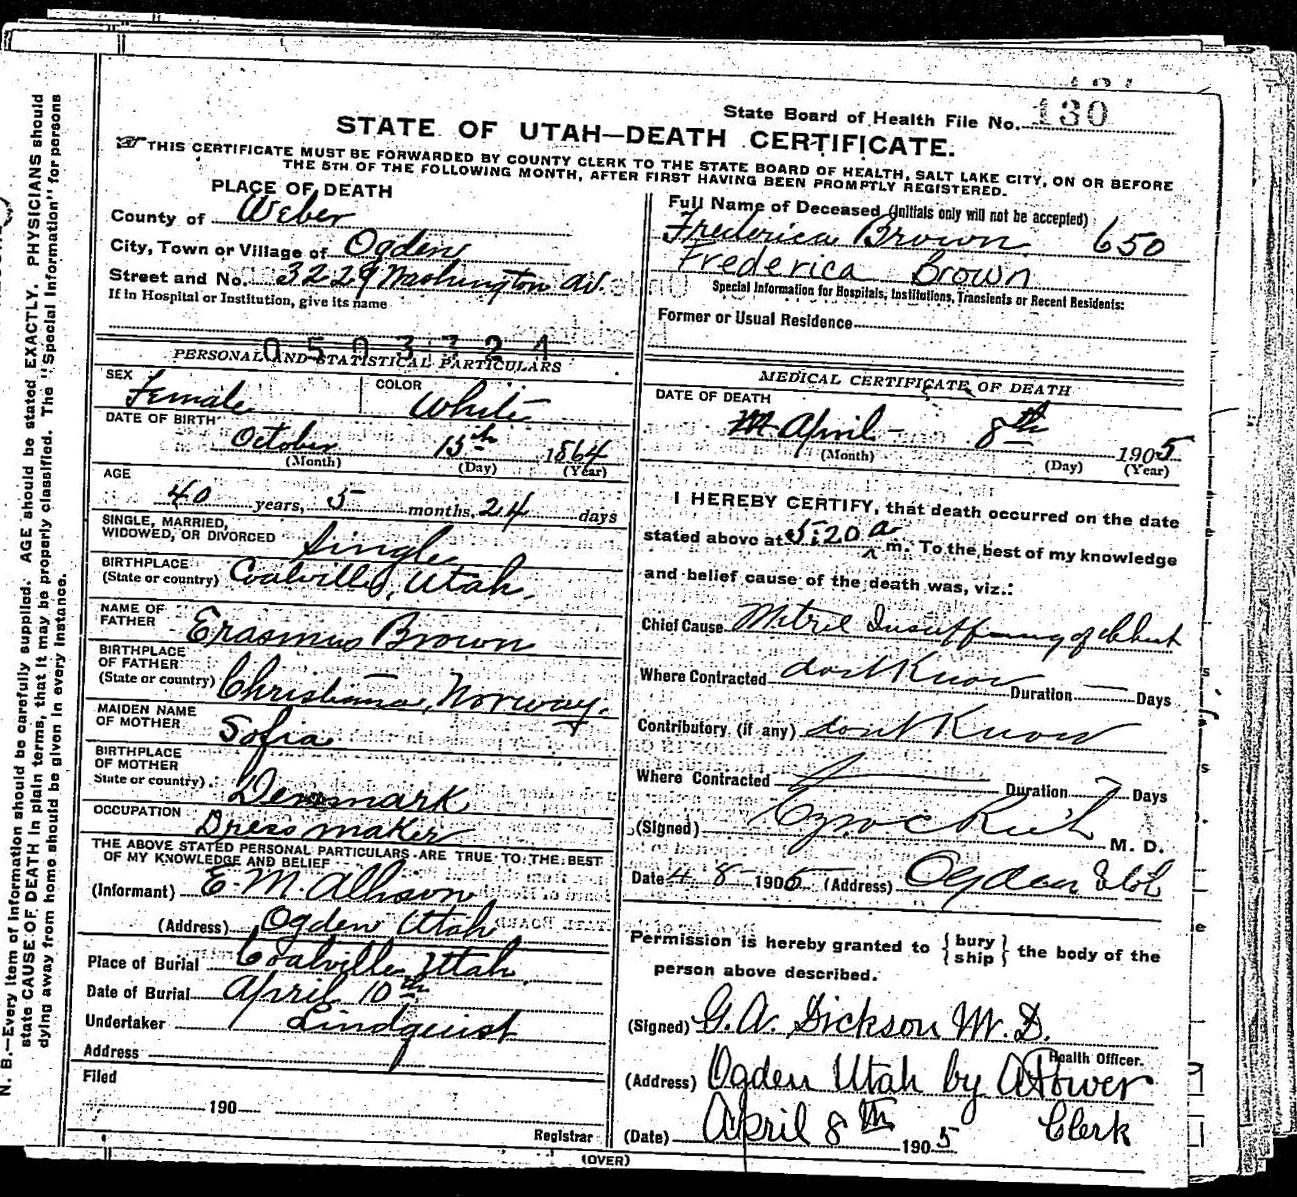 State Board of Health File No. 130
STATE OF UTAH—DEATH CERTIFICATE.
THIS CERTIFICATE MUST BE FORWARDED BY COUNTY CLERK TO THE STATE BOARD OF HEALTH, SALT LAKE CITY, ON OR BEFORE
THE 5TH OF THE FOLLOWING MONTH, AFTER FIRST HAVING BEEN PROMPTLY REGISTERED.
PLACE OF DEATH
County of Weber
City, Town or Village of Ogden
Street and No. 3229 Washington Av.
If in Hospital or Institution, give its name
0503324
PERSONAL AND STATISTICAL PARTICULARS
SEX Female
COLOR White
DATE OF BIRTH
October 15th 1864
(Month) (Day) (Year)
AGE
40 years, 5 months, 24 days
SINGLE, MARRIED,
WIDOWED, OR DIVORCED Single
BIRTHPLACE
(State or country) Coalville, Utah.
NAME OF
FATHER Erasmus Brown
BIRTHPLACE
OF FATHER
(State or country) Christiana, Norway.
MAIDEN NAME
OF MOTHER Sofia
BIRTHPLACE
OF MOTHER
State or country) Denmark
OCCUPATION Dress maker
THE ABOVE STATED PERSONAL PARTICULARS ARE TRUE TO THE BEST
OF MY KNOWLEDGE AND BELIEF
(Informant) E. M. Allison
(Address) Ogden Utah
Place of Burial Coalville, Utah,
Date of Burial April 10th
Undertaker Lindquist
Address
Filed
190
Registrar
Full Name of Deceased (Initials only will not be accepted)
Frederica Brown 650
Frederica Brown
Special Information for Hospitals, Institutions, Transients or Recent Residents:
Former or Usual Residence
MEDICAL CERTIFICATE OF DEATH
DATE OF DEATH
April 8th 1905
(Month) (Day) (Year)
I HEREBY CERTIFY, that death occurred on the date
stated above at 5:20 a m. To the best of my knowledge
and belief cause of the death was, viz.:
Chief Cause Mitrel Insufficiency of
Where Contracted dont Know Duration — Days
Contributory (if any) dont Know
Where Contracted Duration Days
(Signed) M. D.
Date 4 8 1905 (Address) Ogden Utah
Permission is hereby granted to {bury ship} the body of the
person above described.
(Signed) G. A. Dickson M. D.
Health Officer.
(Address) Ogden Utah by
Clerk
(Date) April 8th 1905
(OVER)
N. B.—Every item of information should be carefully supplied. AGE should be stated EXACTLY. PHYSICIANS should
state CAUSE OF DEATH in plain terms, that it may be properly classified. The "Special Information" for persons
dying away from home should be given in every instance.